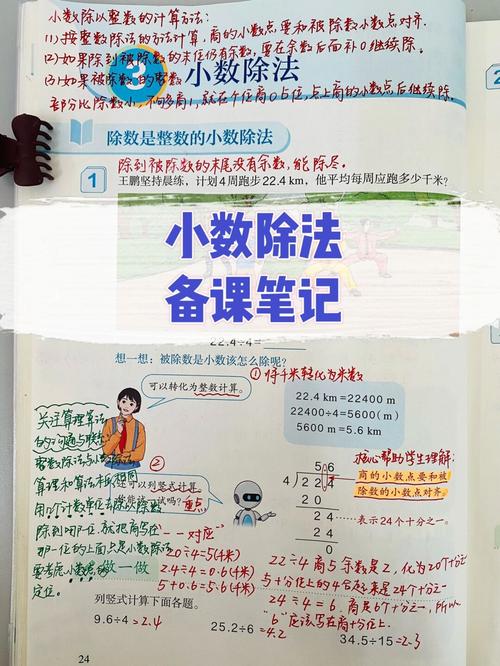 小数除以整数的计算方法:
(1)按整数除法的方法计算,商的小数点要和被除数小数点对齐.
(2)如果除到被除数的末位仍有余数,要在余数后面补0继续除。
(3)如果被除数的整数
部分比除数小,不够商1,就在个位商0占位,点上商的小数点后继续除.
3 小数除法
除数是整数的小数除法
除到被除数的末尾没有余数,能除尽。
1
王鹏坚持晨练,计划4周跑步22.4 km,他平均每周应跑多少千米?
小数除法
备课笔记
22.4÷4=
想一想:被除数是小数该怎么除呢?
①将千米转化为米数
可以转化为整数计算。
22.4 km=22400 m
22400÷4=5600(m)
5600 m=5.6 km
关注算理算法
的沟通与联系
整数除法与小数除法
算理和算法相同
②
还可以列竖式计算。
重点
核心帮助学生理解:
商的小数点要和被
除数的小数点对齐。
5 6
4 22.4
2 0
2 4
2 4
0
表示24个十分之一。
除到哪一位,就把商写在
那一位的上面
一一对应
20÷4=5(千米)
2.4÷4=0.6(千米)
5+0.6=5.6(千米)
定位。
做一做
22÷4商5余数是2,化为20个十分之一
24÷4=6,商是6个十分之一,所以
"6"应该写在商十分位上.
列竖式计算下面各题。
9.6÷4=2.4
25.2÷6=4.2
34.5÷15=2.3
24